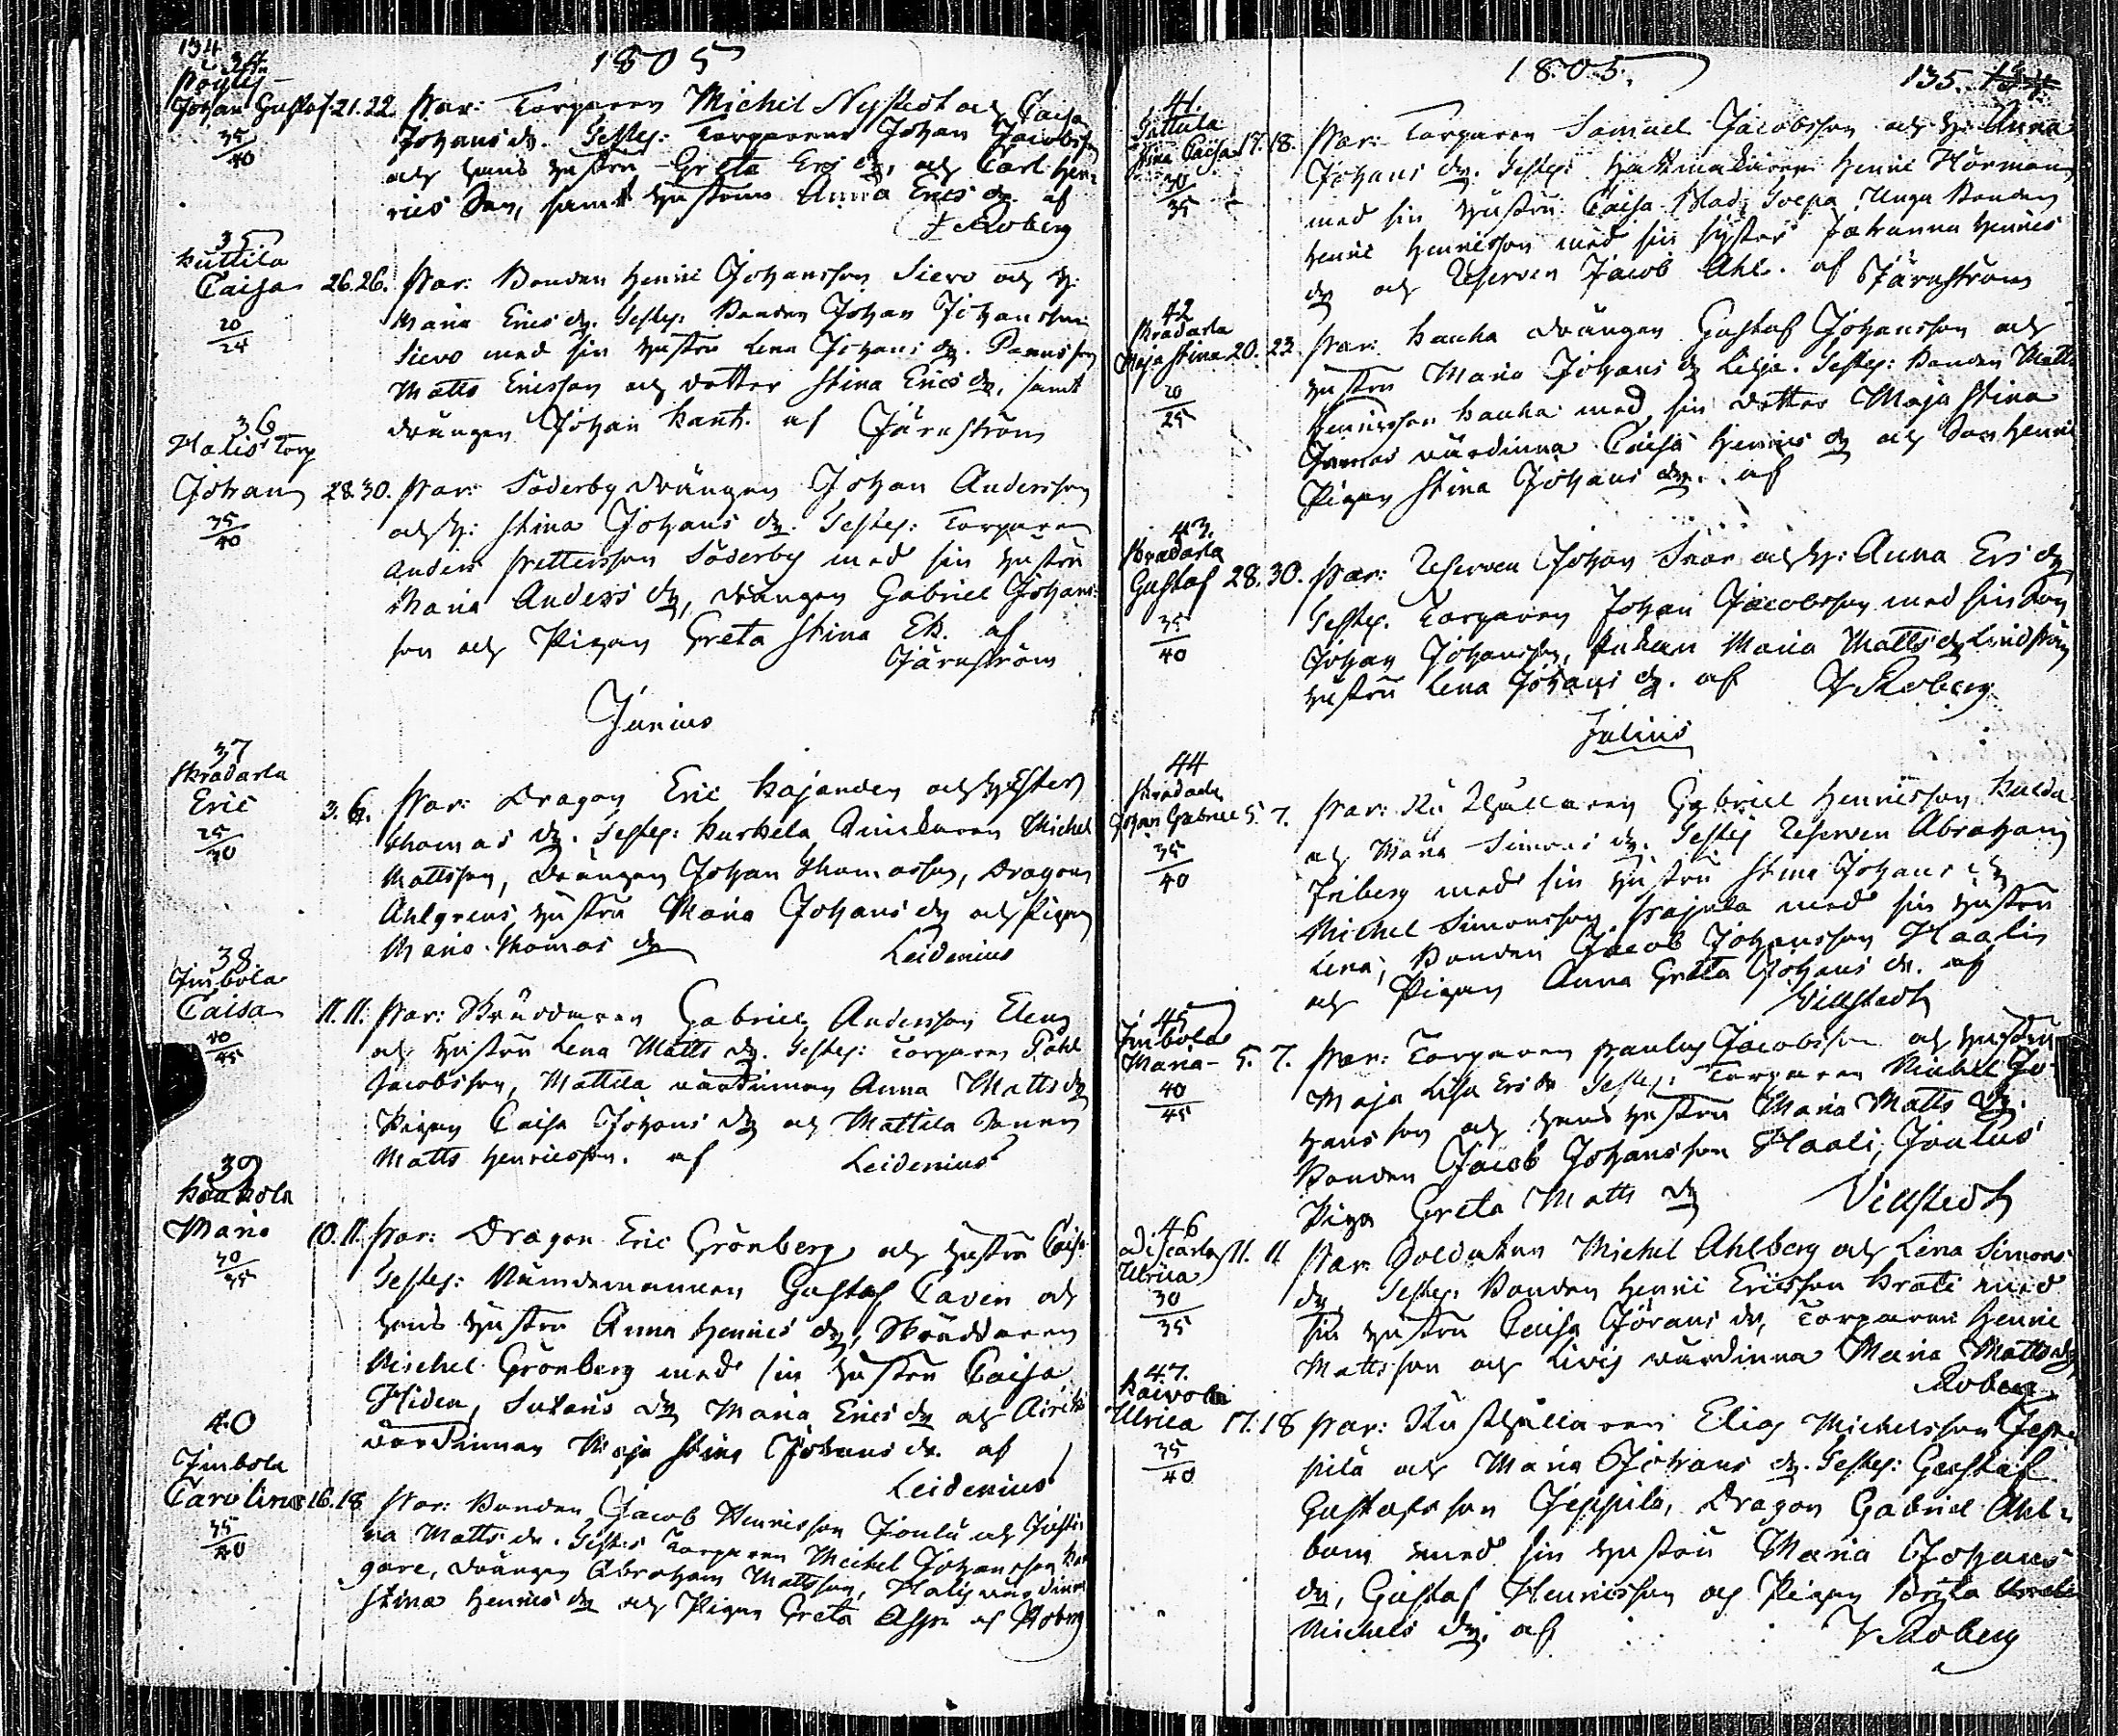 134
1805
34
Johan Gustaf 21. 22. Par: Torparen Michel Nystedt och Caisa
35/40
Johans dr. Testes: Torparens Johan Jacobsson
och hans hustru Greta Ers dr, och Carl Hen-
rics Son, samt hustrun Anna Erics dr. af
J Roberg
35
Huttila
Caisa 26. 26. Par: Bonden Henric Johansson Sievo och h:
20/25
Maria Erics dr. Testes: Bonden Johan Johansson
Sievo med sin hustru Lena Johans dr.
Matts Ericsson och dotter Stina Erics dr, samt
drängen Johan af Järnström
36
Halis Torp
Johan 28. 30. Par: Söderby drängen Johan Andersson
35/40
och h: Stina Johans dr. Testes: Torparen
Anders Pettersson Söderby med sin hustru
Maria Anders dr, drängen Gabriel Johans-
son och Pigan Greta Stina Ek. af
Järnström
Junius
37
Pradarla
Eric 3. 6. Par: Dragon Eric Kajander och h: Ester
25/30
Thomas dr. Testes: Michel
Mattsson, drängen Johan Thomasson, Dragon
Ahlgrens hustru Maria Johans dr och Pigan
Maria Thomas dr Leidenius
38
Jinbola
Caisa 11. 11. Par: Skräddaren Gabriel Andersson
40/45
och hustru Lena Matts dr. Testes: Torparen Påhl
Jacobsson, Mattila värdinnan Anna Matts dr
Pigan Caisa Johans dr och Mattila Sonen
Matts Henricsson. af Leidenius
39
Maria 10. 11. Par: Dragon Eric Grönberg och hustru Caisa
30/35
Testes: Nämndemannen Gustaf Caven och
hans hustru Anna Henrics dr, Skräddaren
Michel Grönberg med sin hustru Caisa
Hiden, dr Maria Erics dr och
värdinnan Maja Stina Johans dr. af
Leidenius
40
Jinbola
Carolina 16. 18. Par: Bonden Jacob Henricsson Joulu och Justi-
35/40
na Matts dr. Testes Torparen Michel Johansson
drängen Abraham Mattsson, Halis värdinna
Stina Henrics dr och Pigan Greta af Roberg
1805.
135.
41.
Tattula
Stina Caisa 17. 18. Par: Torparen Samuel Jacobsson och h: Anna
30/35
Johans dr. Testes: Hattmakaren Henric Hörman
med sin hustru Caisa Unga Bonden
Henric Henricsson med sin syster Johanna Henrics
dr och Reserven Jacob Ahl. af Järnström
42
Pradarla
Maja Stina 20. 23. Par: Hauka drängen Gustaf Johansson och
20/25
hustru Maria Johans dr Lilja. Testes: Bonden Matts
Henricsson Hauka med sin dotter Maja Stina
värdinna Caisa Henrics dr och Son Henric
Pigan Stina Johans dr. af
43.
Pradarla
Gustaf 28. 30. Par: Reserven Johan Snäll och h: Anna Ers dr
35/40
Testes. Torparen Johan Jacobsson med sin Son
Johan Johansson, Enkan Maria Matts dr Lindström
hustru Lena Johans dr. af J Roberg
Julius
44
Pradarla
Johan Gabriel 5. 7. Par: Rusthållaren Gabriel Henricsson
35/40
och Maria Simons dr. Testes Reserven Abraham
Friberg med sin hustru Stina Johans dr
Michel Simonsson med sin hustru
Lena, Bonden Jacob Johansson Haali
och Pigan Anna Greta Johans dr. af
Villstedt
45
Jinbola
Maria 5. 7. Par: Torparen Paulus Jacobsson och hustru
40/45
Maja Lisa Ers dr Testes: Torparen Michel Jo-
hansson och hans hustru Maria Matts dr.
Bonden Jacob Johansson Haali, Joulus
Piga Greta Matts dr Villstedt
46
Ulrica 11. 11 Par: Soldaten Michel Ahlberg och Lena Simons
30/35
dr. Testes. Bonden Henric Ericsson med
sin hustru Caisa Jörans dr, Torparen Henric
Mattsson och värdinna Maria Matts dr
Roberg
47.
Kaivola
Ulrica 17. 18 Par: Rusthållaren Elias Michelsson Jep-
35/40
pilä och Maria Johans dr. Testes: Gustaf
Gustafsson Jeppilä, Dragon Gabriel Ahl-
bom med sin hustru Maria Johans
dr, Gustaf Henricsson och Pigan Brita
Michels dr. af J Roberg